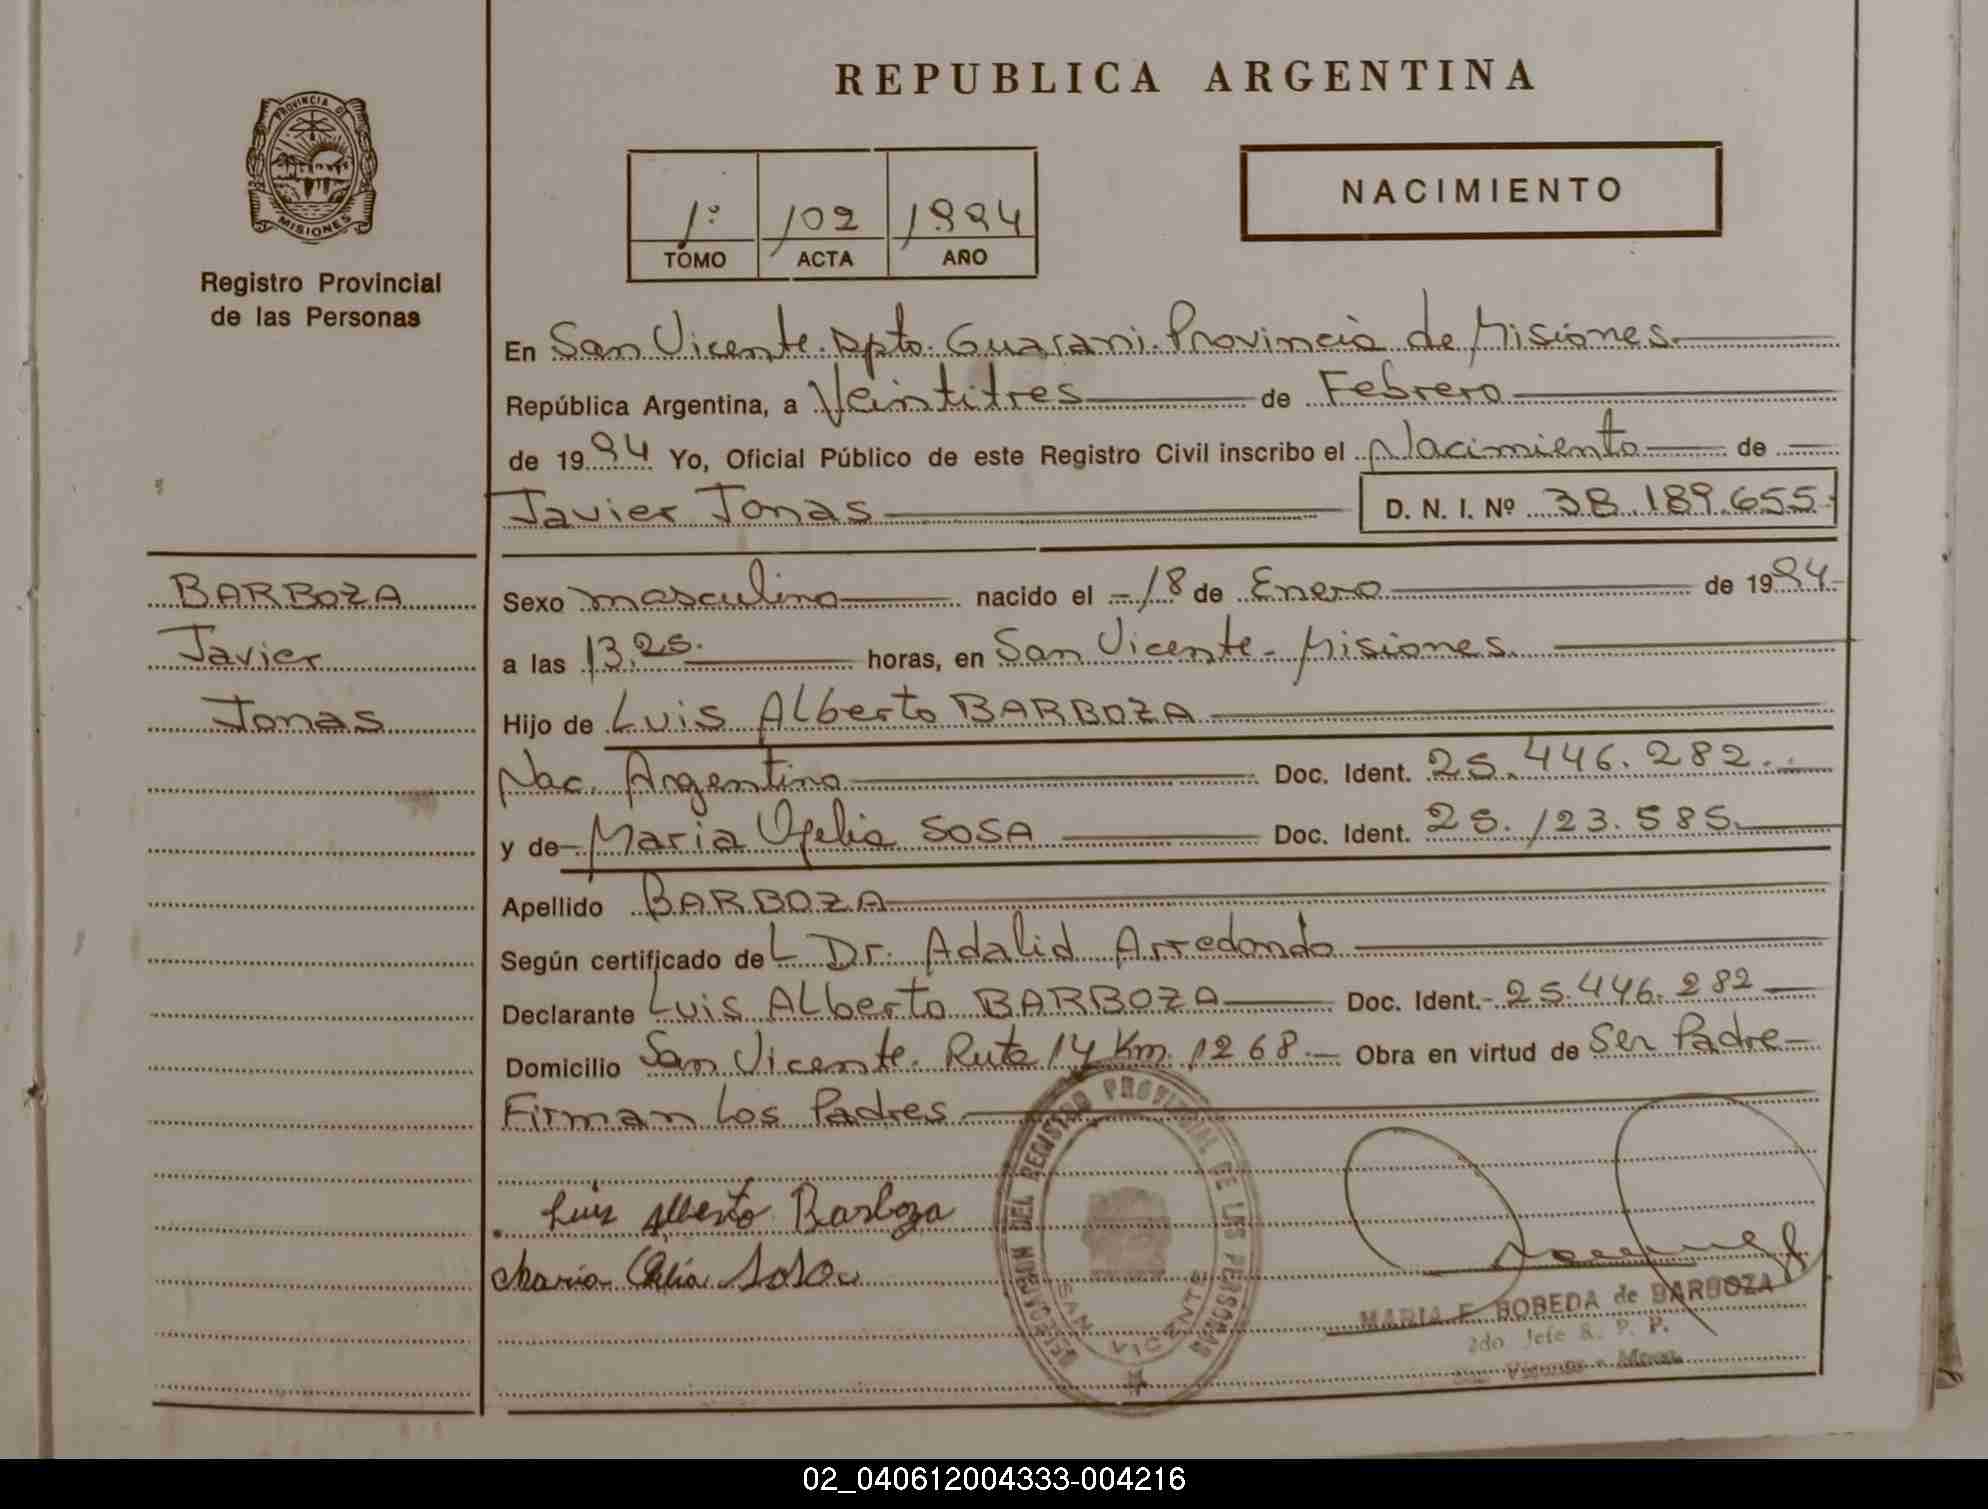 REPUBLICA ARGENTINA
PROVINCIA DE
MISIONES
Registro Provincial
de las Personas
1º 102 1994
TOMO ACTA AÑO
NACIMIENTO
En San Vicente. Dpto. Guarani. Provincia de Misiones
República Argentina, a Veintitres de Febrero
de 1994 Yo, Oficial Público de este Registro Civil inscribo el Nacimiento de
Javier Jonas D. N. I. Nº 38.189.655
BARBOZA
Javier
Jonas
Sexo masculino nacido el 18 de Enero de 1994
a las 13,25. horas, en San Vicente - Misiones
Hijo de Luis Alberto BARBOZA
Nac. Argentino Doc. Ident. 25.446.282.
y de Maria Ofelia SOSA Doc. Ident. 25.123.585.
Apellido BARBOZA
Según certificado del Dr. Adalid Arredondo
Declarante Luis Alberto BARBOZA Doc. Ident. 25.446.282
Domicilio San Vicente. Ruta 14 Km. 1268. Obra en virtud de Ser Padre
Firman Los Padres
Luis Alberto Barboza
Maria Ofelia Sosa
DELEGACION DEL REGISTRO PROVINCIAL DE LAS PERSONAS
SAN VICENTE
MARIA E. BOBEDA de BARBOZA
2do Jefe R. P. P.
Vicente - Mnes.
02_040612004333-004216